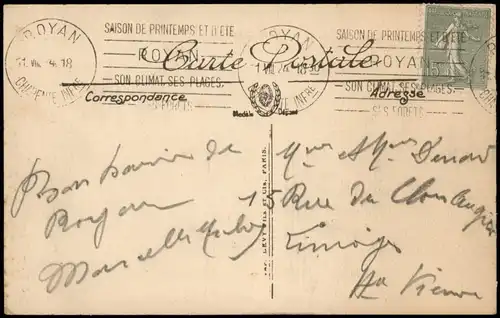 ROYAN
CHARENTE INFRE
SAISON DE PRINTEMPS ET D'ÉTÉ
ROYAN
SON CLIMAT, SES PLAGES,
SES FORETS
ROYAN
CHARENTE INFRE
SAISON DE PRINTEMPS ET D'ÉTÉ
ROYAN
SON CLIMAT, SES PLAGES,
SES FORETS
Carte Postale
Correspondance
Adresse
Modèle Déposé
LEVY FILS ET Cie, PARIS.
Bon Souvenir de
Royan
Marcelle
Mme & Mr
15 Rue du
Limoges
Hte Vienne